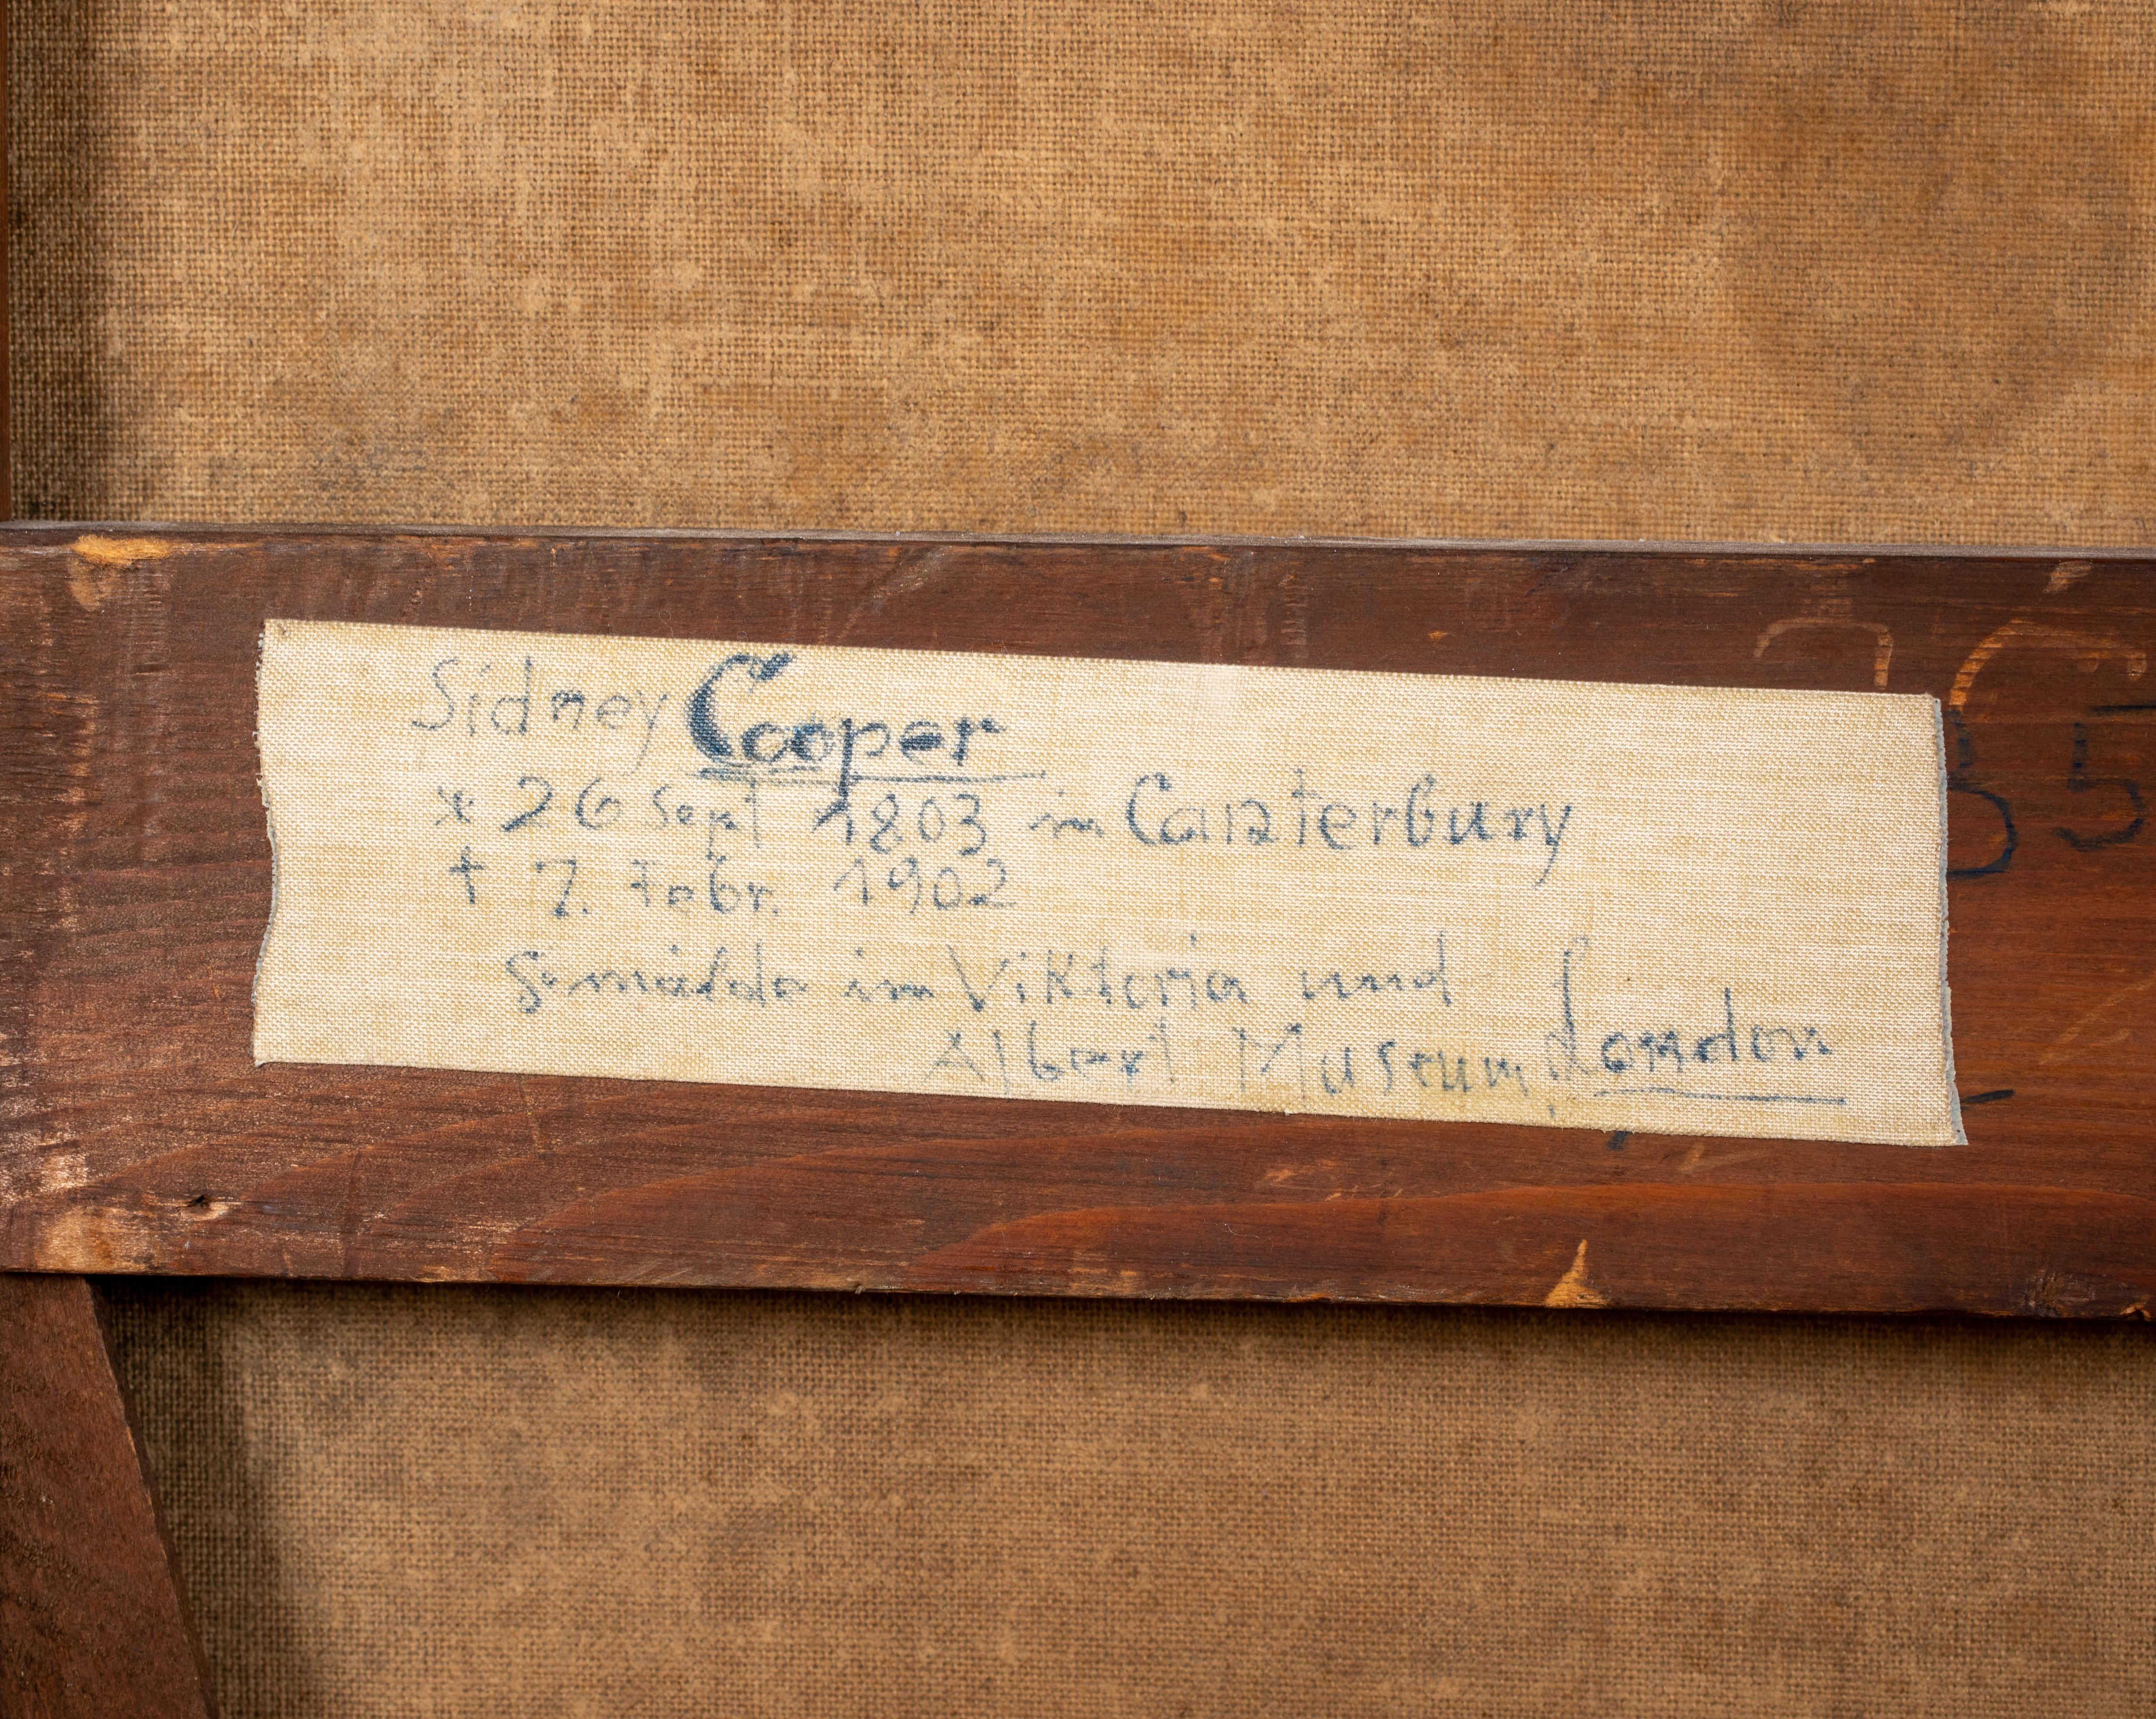 Sidney Cooper
* 26 Sept 1803 in Canterbury
† 7. Febr. 1902
Gemälde im Viktoria und
Albert Museum, London
35